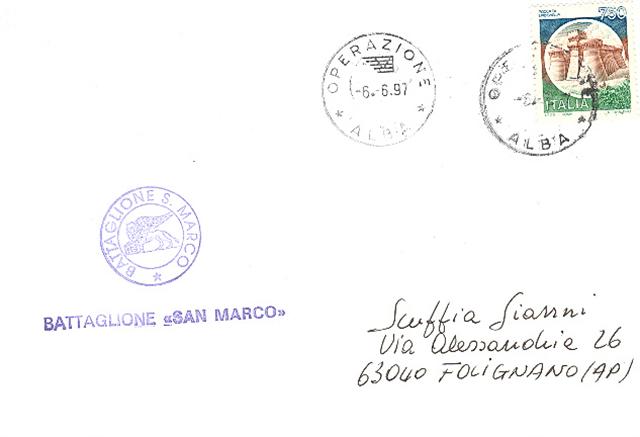 OPERAZIONE
-6.-6.97
* ALBA *
750
ITALIA
* ALBA *
BATTAGLIONE S. MARCO
*
BATTAGLIONE «SAN MARCO»
Scuffia Gianni
Via Alessandria 26
63040 FOLIGNANO (AP)